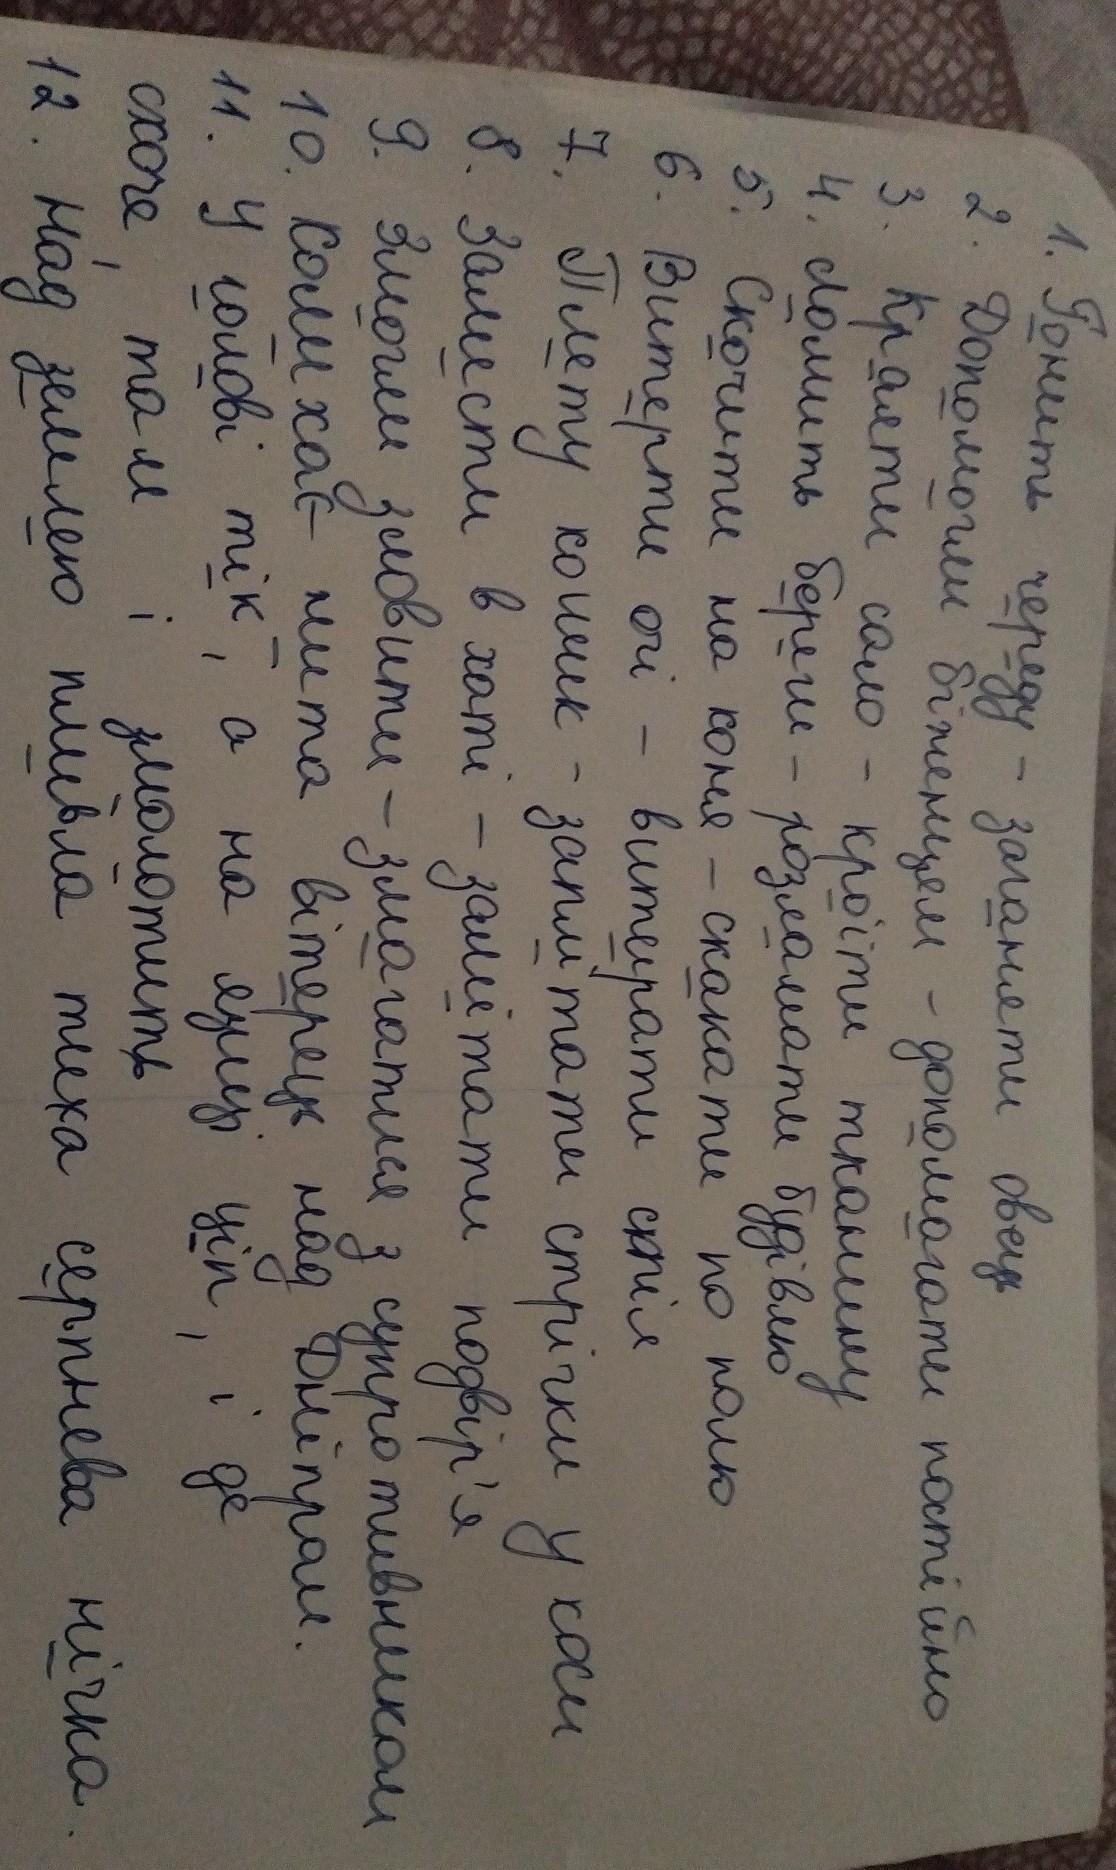 1. Гонить череду - заганяти овець
2. Допомогли біженцем - допомагати постійно
3. Краяти сало - кроїти тканину
4. Ломить береги - розламати будівлю
5. Скочити на коня - скакати по полю
6. Витерти очі - витирати скпя
7. Плету кошик - заплітати стрічки у коси
8. Замести в хаті - замітати подвір'я
9. Змогли зловити - змагатися з супротивником
10. Колихає жита вітерець над Дніпром.
11. У голові тік, а на язиці ціп, і де
схоче, там і змолотить
12. Над землею пливла тиха серпнева нічка.